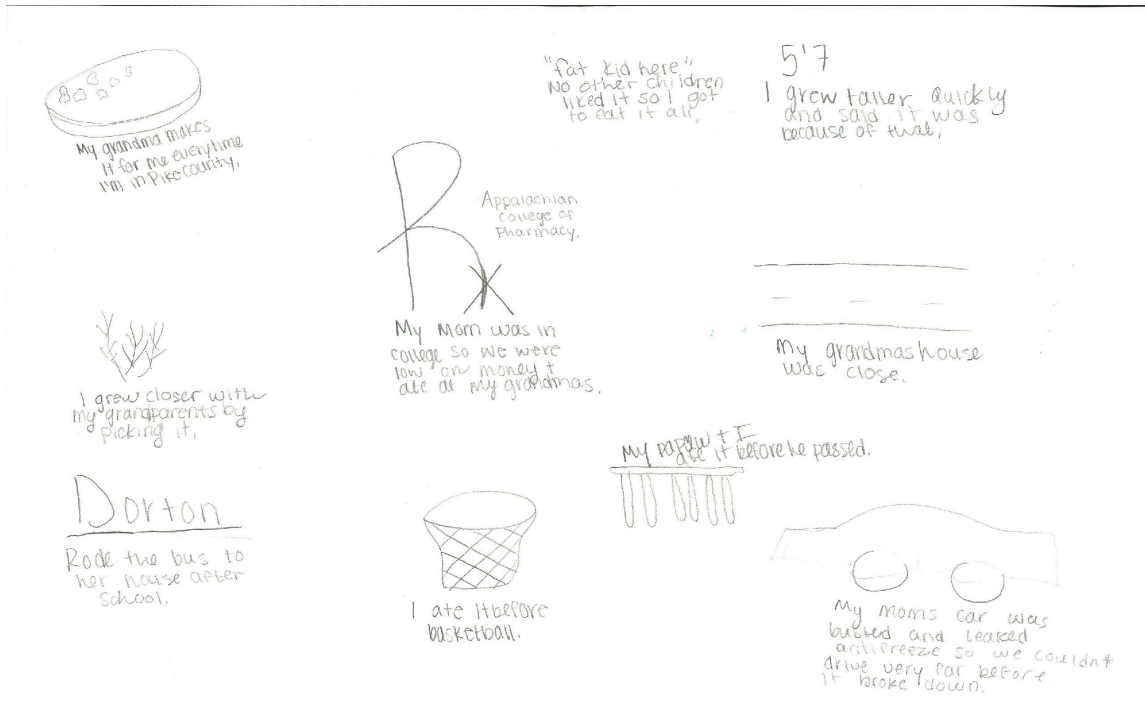 "fat kid here"
No other children
liked it so I got
to eat it all.
5'7
I grew taller quickly
and said it was
because of that.
My grandma makes
it for me everytime
I'm in Pike county.
Rx
Appalachian
College of
Pharmacy.
My Mom was in
college so we were
low on money +
ate at my grandmas.
My grandmas house
was close.
I grew closer with
my grandparents by
picking it.
My papaw + I
ate it before he passed.
Dorton
Rode the bus to
her house after
School.
I ate it before
basketball.
My moms car was
busted and leaked
antifreeze so we couldnt
drive very far before
it broke down.